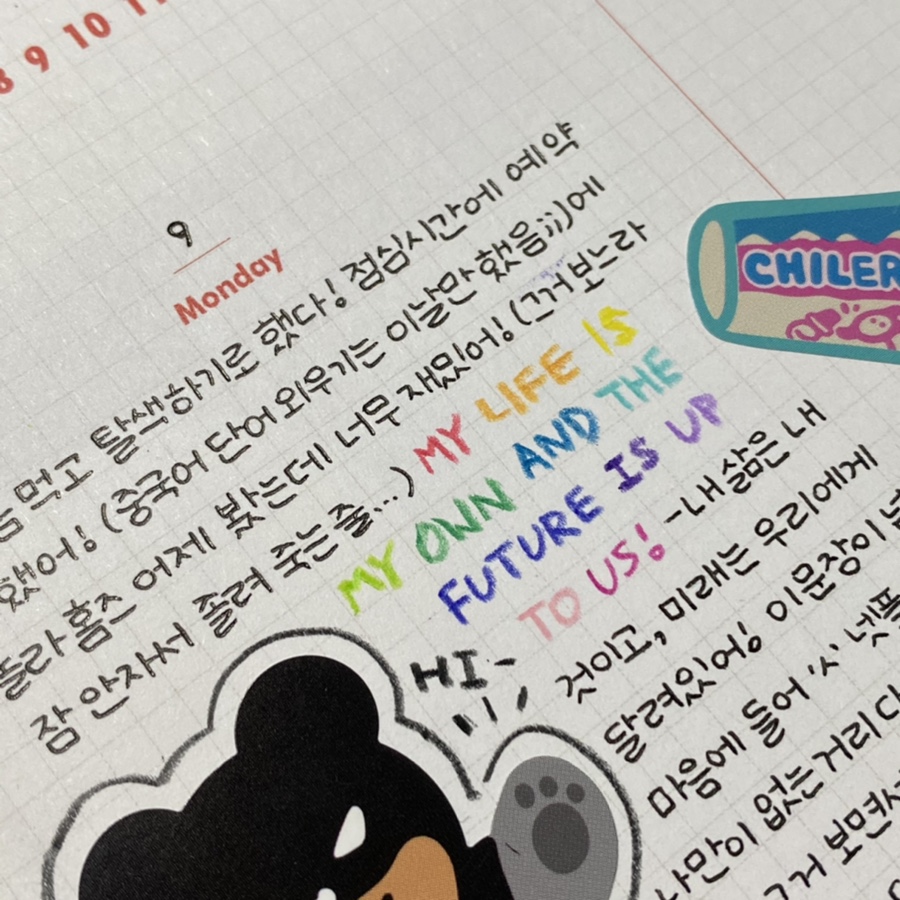 8 9 10 11
9
Monday
먹고 탈색하기로 했다! 점심시간에 예약
했어! (중국어 단어 외우기는 이날만 했음;;)에
놀라 홈즈 어제 봤는데 너무 재밌어! (그거 보느라
잠 안자서 졸려 죽는줄...) MY LIFE IS
MY OWN AND THE
FUTURE IS UP
TO US! -내 삶은 내
것이고, 미래는 우리에게
달려있어! 이 문장이
마음에 들어 '人'
나만이 없는 거리
그거 보면서
HI-
CHILER